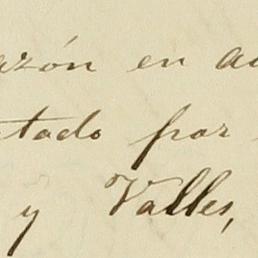 azón en au
tado por
y Valles,